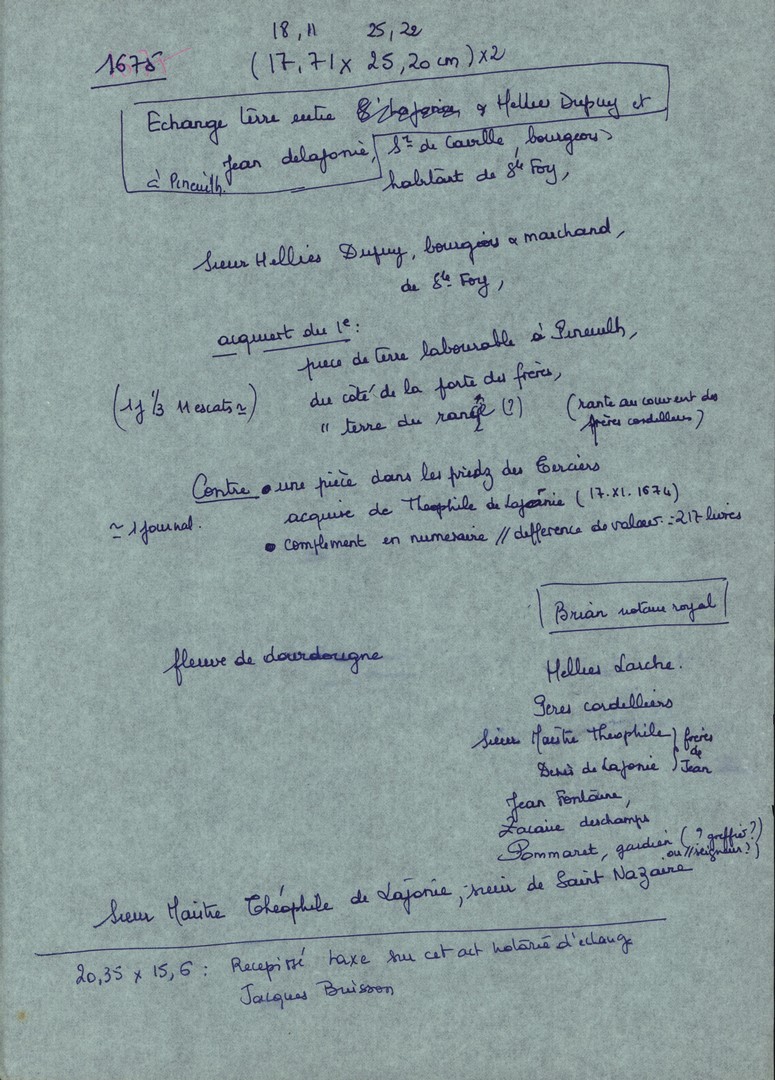 18,11 25,22
1675 (17,71 x 25,20 cm) x2
Echange terre entre & Hellies Dupuy et
Jean delajonie, Sr de Caville, bourgeois
à Pineuilh. habitant de Ste Foy,
Sieur Hellies Dupuy, bourgeois & marchand,
de Ste Foy,
acquiert du 1e :
piece de terre labourable à Pineuilh,
(1j 1/3 11 escats ≃) du côté de la porte des frères,
" terre du (?) (rante au couvent des
frères cordeliers)
Contre • une pièce dans les priedz des Terciers
≃ 1 journal. acquise de Theophile de Lajonie (17.XI.1674)
• complement en numeraire // difference de valeur := 217 livres
Brian notaire royal
fleuve de dourdougne
Hellies Larche.
Peres cordelliers
Sieur Maitre Theophile } frères
Denis de Lajonie } de Jean
Jean Fontaine,
Zacarie deschamps
Pommaret, gardien (? greffier ?)
ou // seigneur ?)
Sieur Maitre Théophile de Lajonie, sieur de Saint Nazaire
20,35 x 15,5 : Recepissé taxe sur cet act notarié d'echange
Jacques Buisson